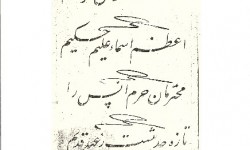 اعظم اسماء علیم حکیم
محترمان حرم انس را
تازه حدیثیست